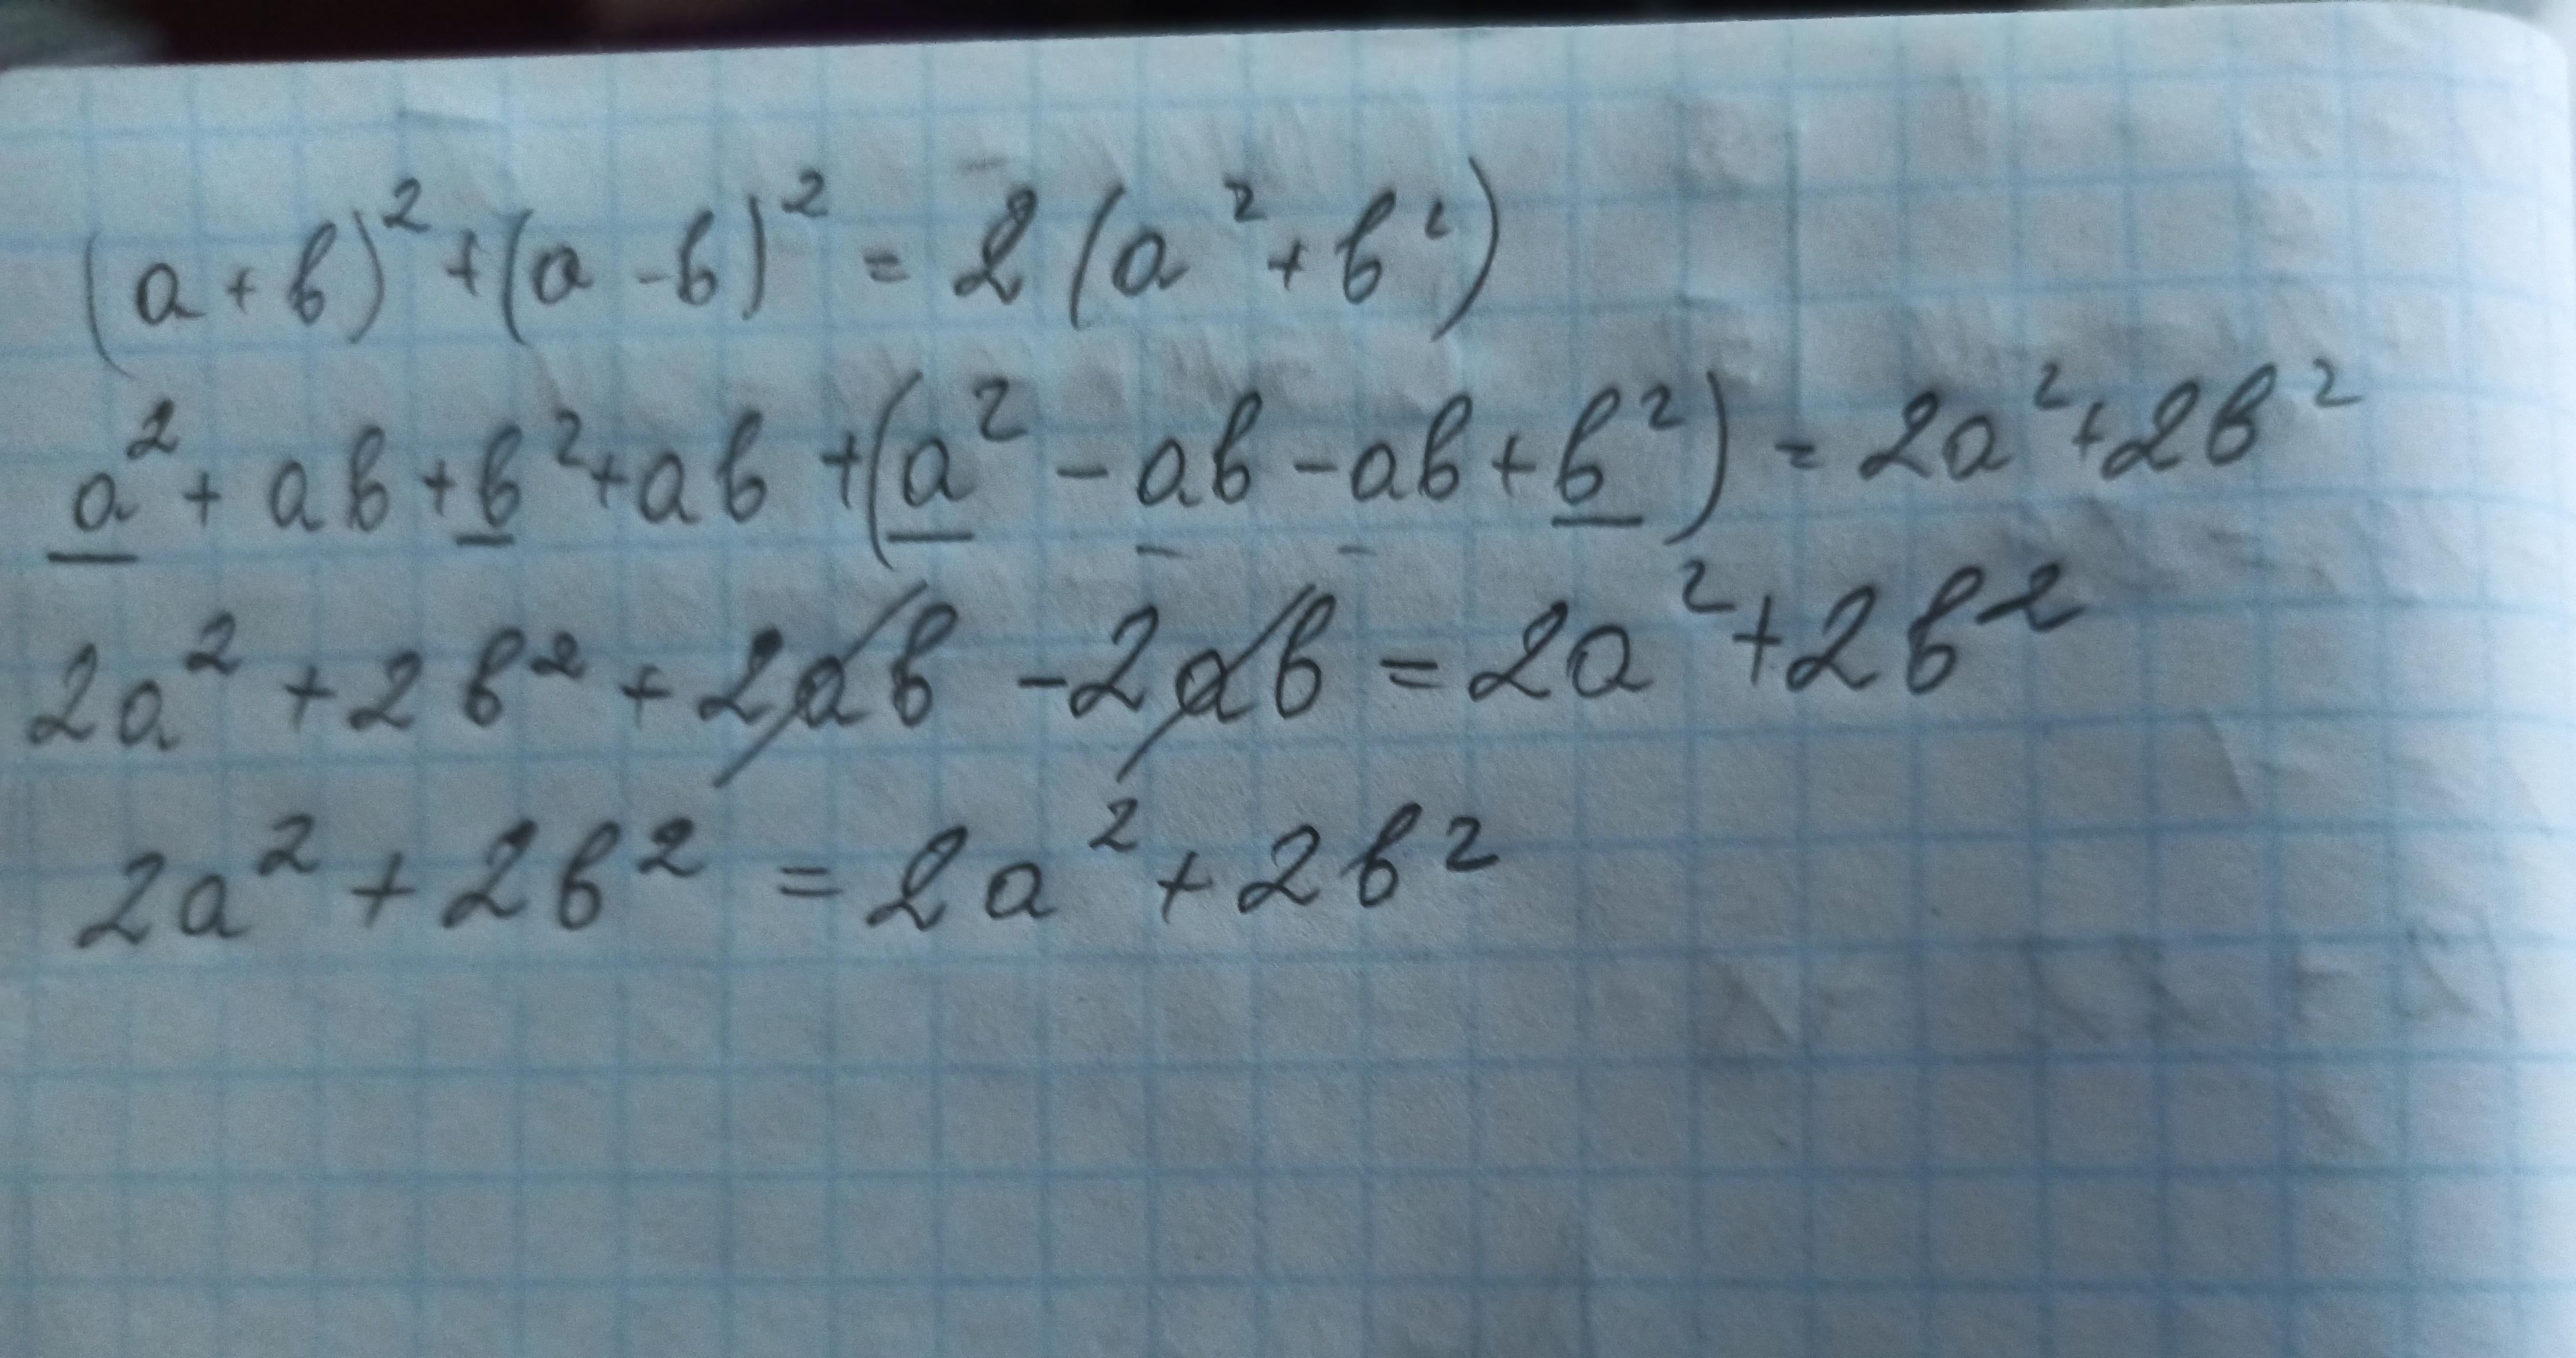 (a+b)²+(a-b)²=2(a²+b²)
a²+ab+b²+ab+(a²-ab-ab+b²)=2a²+2b²
2a²+2b²+2ab-2ab=2a²+2b²
2a²+2b²=2a²+2b²